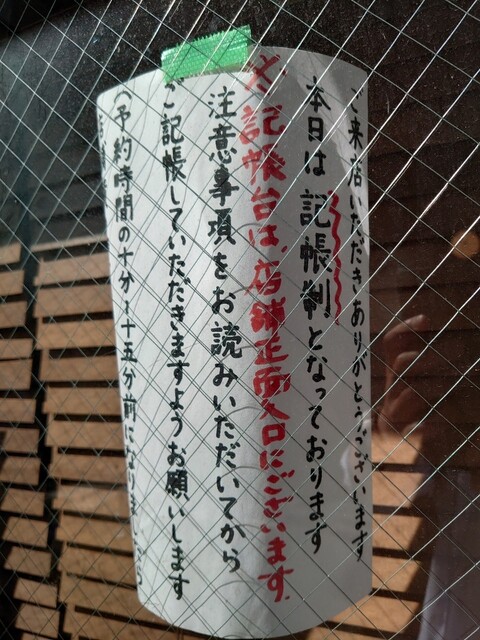 ご来店いただきありがとうございます
本日は記帳制となっております
※記帳台は、店舗正面入口にございます。
注意事項をお読みいただいてから
ご記帳していただきますようお願いします
(予約時間の十分〜十五分前になりま